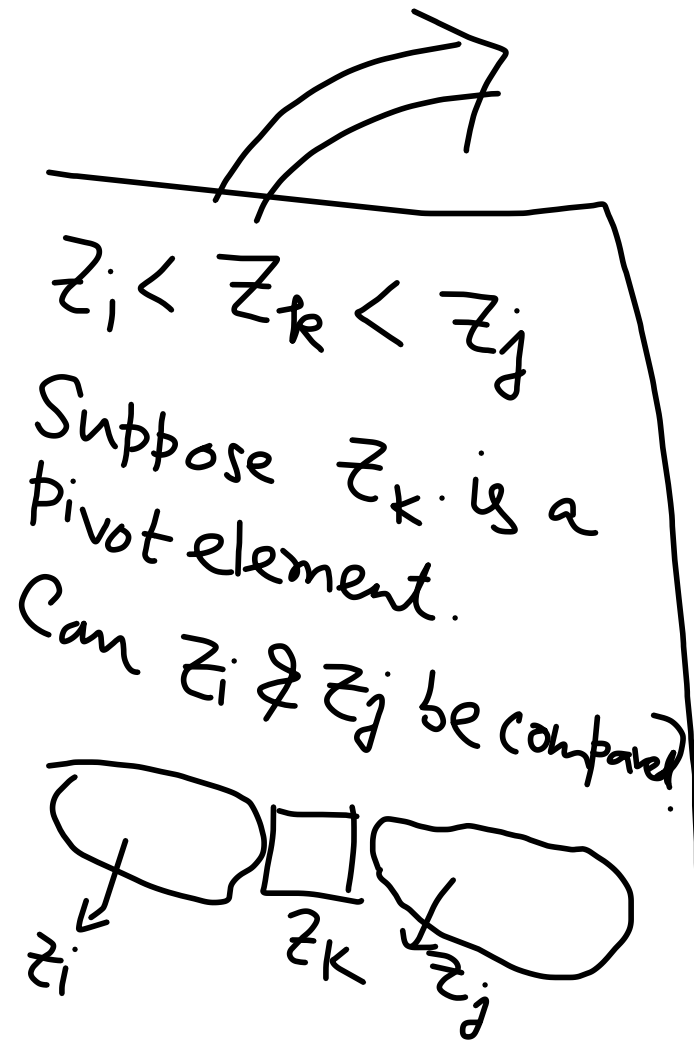 Zi < Zk < Zj
Suppose Zk is a
pivot element.
Can Zi & Zj be compared?
Zi Zk Zj